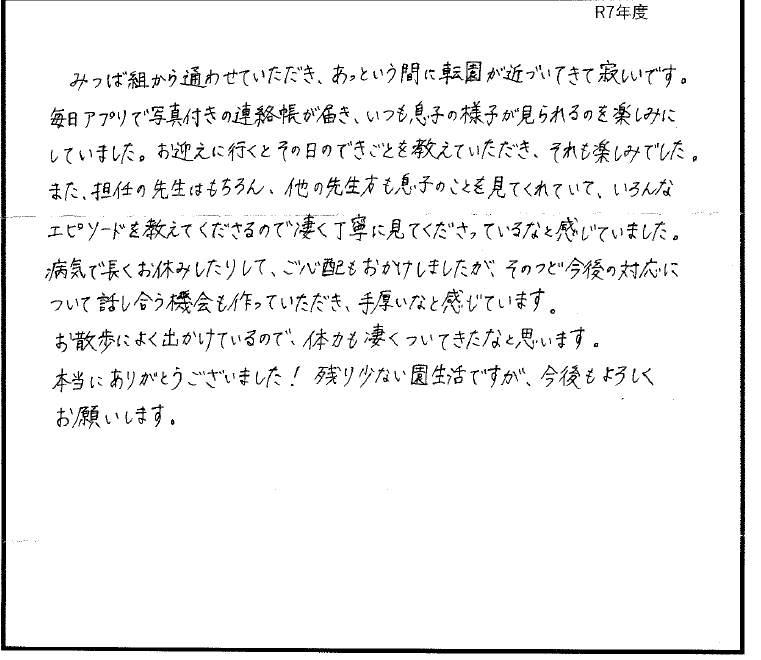 R7年度
みつば組から通わせていただき、あっという間に転園が近づいてきて寂しいです。
毎日アプリで写真付きの連絡帳が届き、いつも息子の様子が見られるのを楽しみに
していました。お迎えに行くとその日のできごとを教えていただき、それも楽しみでした。
また、担任の先生はもちろん、他の先生方も息子のことを見てくれていて、いろんな
エピソードを教えてくださるので凄く丁寧に見てくださっているなと感じていました。
病気で長くお休みしたりして、ご心配もおかけしましたが、そのつど今後の対応に
ついて話し合う機会も作っていただき、手厚いなと感じています。
お散歩によく出かけているので、体力も凄くついてきたなと思います。
本当にありがとうございました！ 残り少ない園生活ですが、今後もよろしく
お願いします。